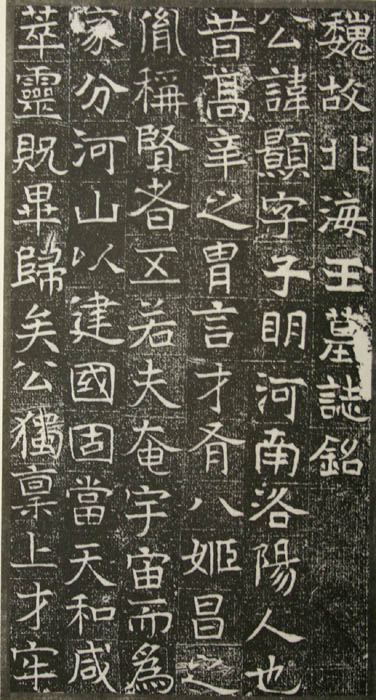 魏故北海王墓誌銘
公諱顥字子明河南洛陽人也
昔高辛之胄言才有八姬昌之
胤稱賢者五若夫奄宇宙而為
家分河山以建國固當天和咸
萃靈貺畢歸矣公獨稟上才牢